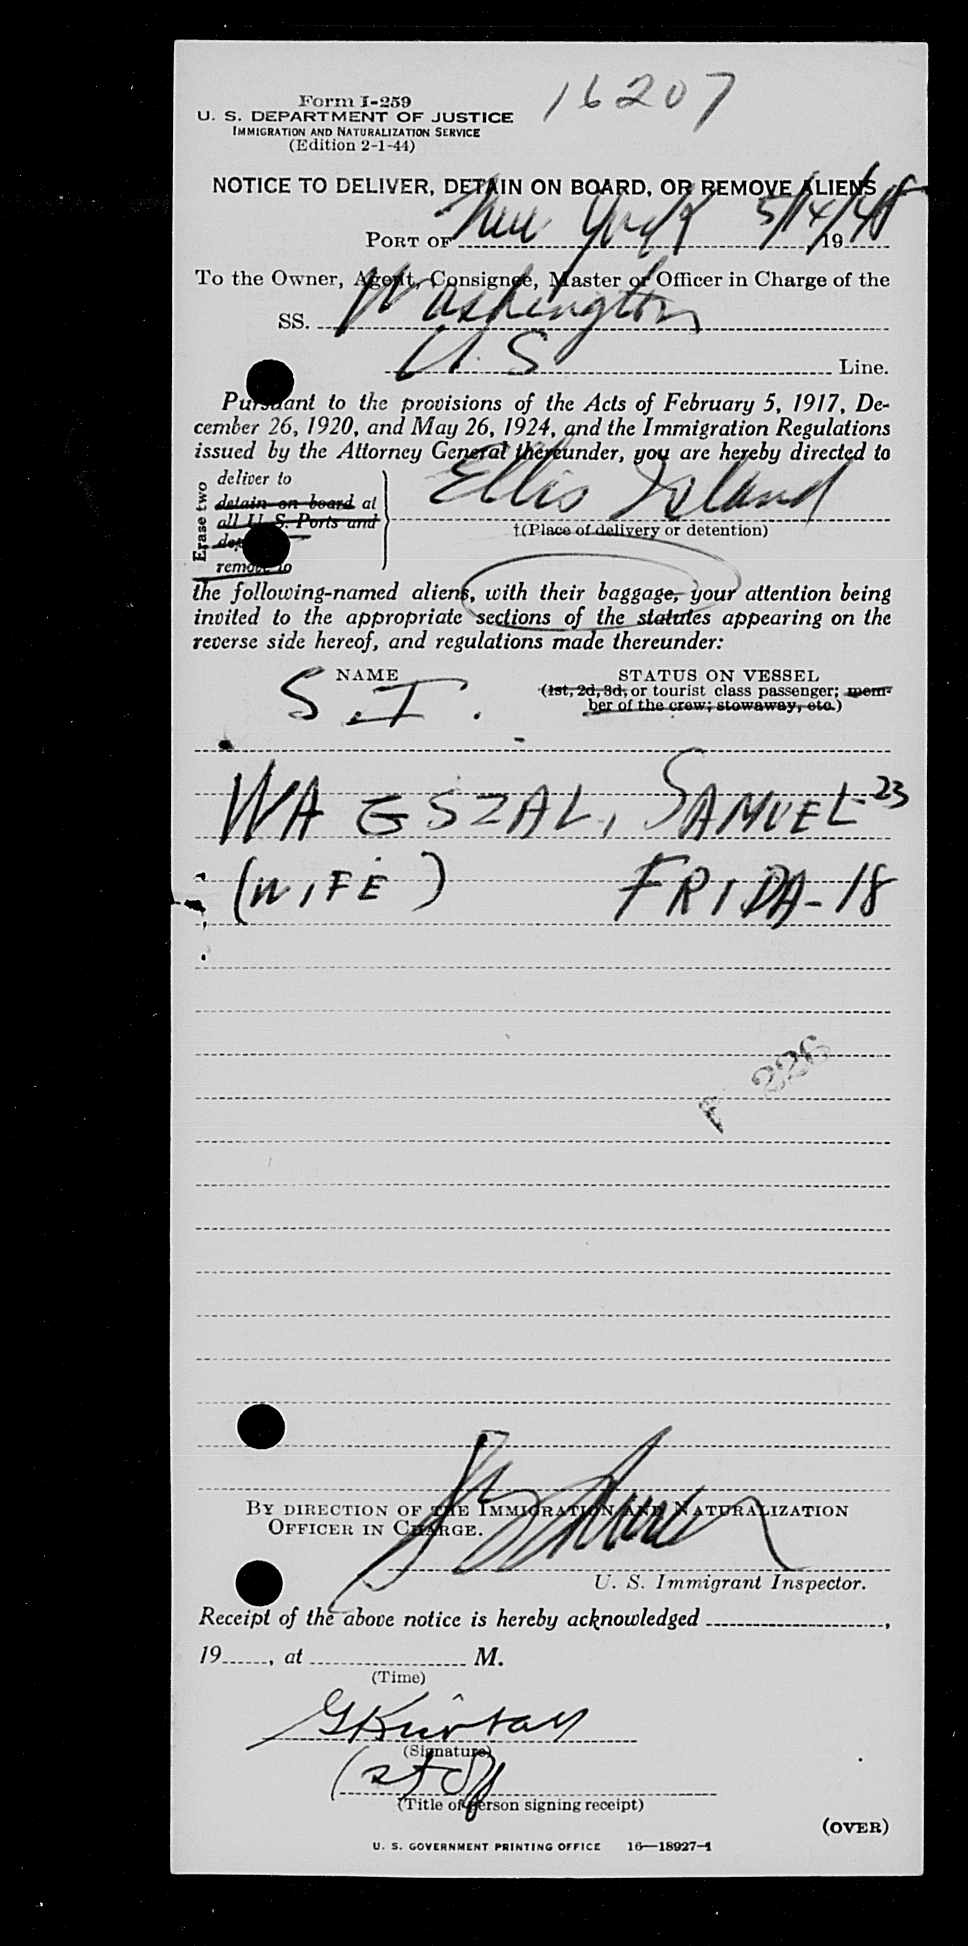 16207
Form I-259
U. S. DEPARTMENT OF JUSTICE
IMMIGRATION AND NATURALIZATION SERVICE
(Edition 2-1-44)
NOTICE TO DELIVER, DETAIN ON BOARD, OR REMOVE ALIENS
PORT OF New York 5/14/48, 19
To the Owner, Agent, Consignee, Master or Officer in Charge of the
SS. Washington
U. S Line.
Pursuant to the provisions of the Acts of February 5, 1917, De-
cember 26, 1920, and May 26, 1924, and the Immigration Regulations
issued by the Attorney General thereunder, you are hereby directed to
Erase two
deliver to
detain on board at
all U. S. Ports and
remove to
Ellis Island
†(Place of delivery or detention)
the following-named aliens, with their baggage, your attention being
invited to the appropriate sections of the statutes appearing on the
reverse side hereof, and regulations made thereunder:
NAME STATUS ON VESSEL
(1st, 2d, 3d, or tourist class passenger; mem-
ber of the crew; stowaway, etc.)
S. I.
WAGSZAL, SAMUEL-23
(WIFE) FRIDA-18
226
BY DIRECTION OF THE IMMIGRATION AND NATURALIZATION
OFFICER IN CHARGE.
U. S. Immigrant Inspector.
Receipt of the above notice is hereby acknowledged ,
19 , at M.
(Time)
(Signature)
(Title of person signing receipt)
(OVER)
U. S. GOVERNMENT PRINTING OFFICE 16—18927-1